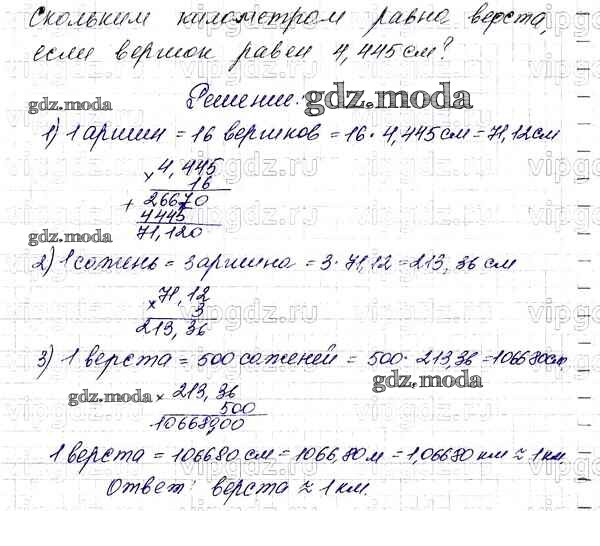 Скольким километрам равна верста,
если вершок равен 4,445 см?
Решение.
gdz.moda
gdz.moda
1) 1 аршин = 16 вершков = 16 · 4,445 см = 71,12 см
× 4,445
16
+ 26670
4445
71,120
gdz.moda
2) 1 сажень = 3 аршина = 3 · 71,12 = 213,36 см
× 71,12
3
213,36
3) 1 верста = 500 саженей = 500 · 213,36 = 106680 см.
gdz.moda
gdz.moda
× 213,36
500
106680,00
1 верста = 106680 см = 1066,80 м = 1,06680 км ≈ 1 км
Ответ: верста ≈ 1 км.